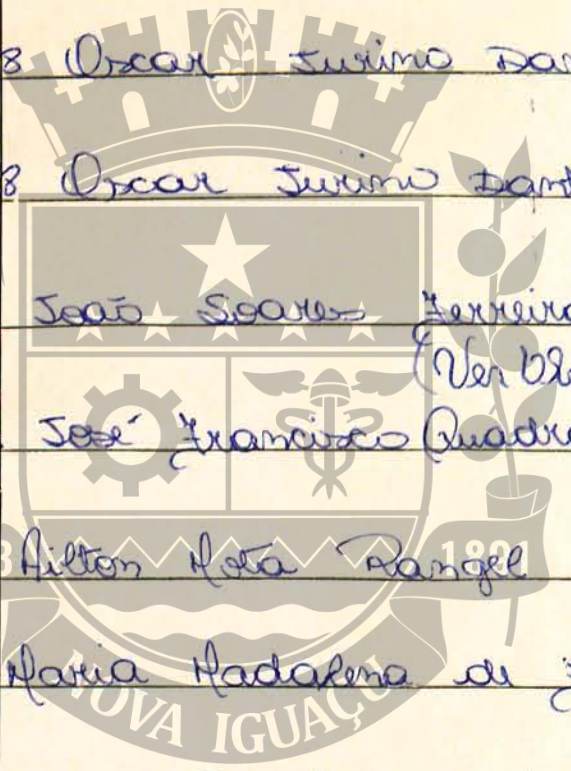 8 Oscar Jurino Dan
8 Oscar Jurino Dant
João Soares Ferreira
(Ver
José Francisco Quadro
Ailton Mota Rangel
Maria Madalena de
1891
NOVA IGUAÇU